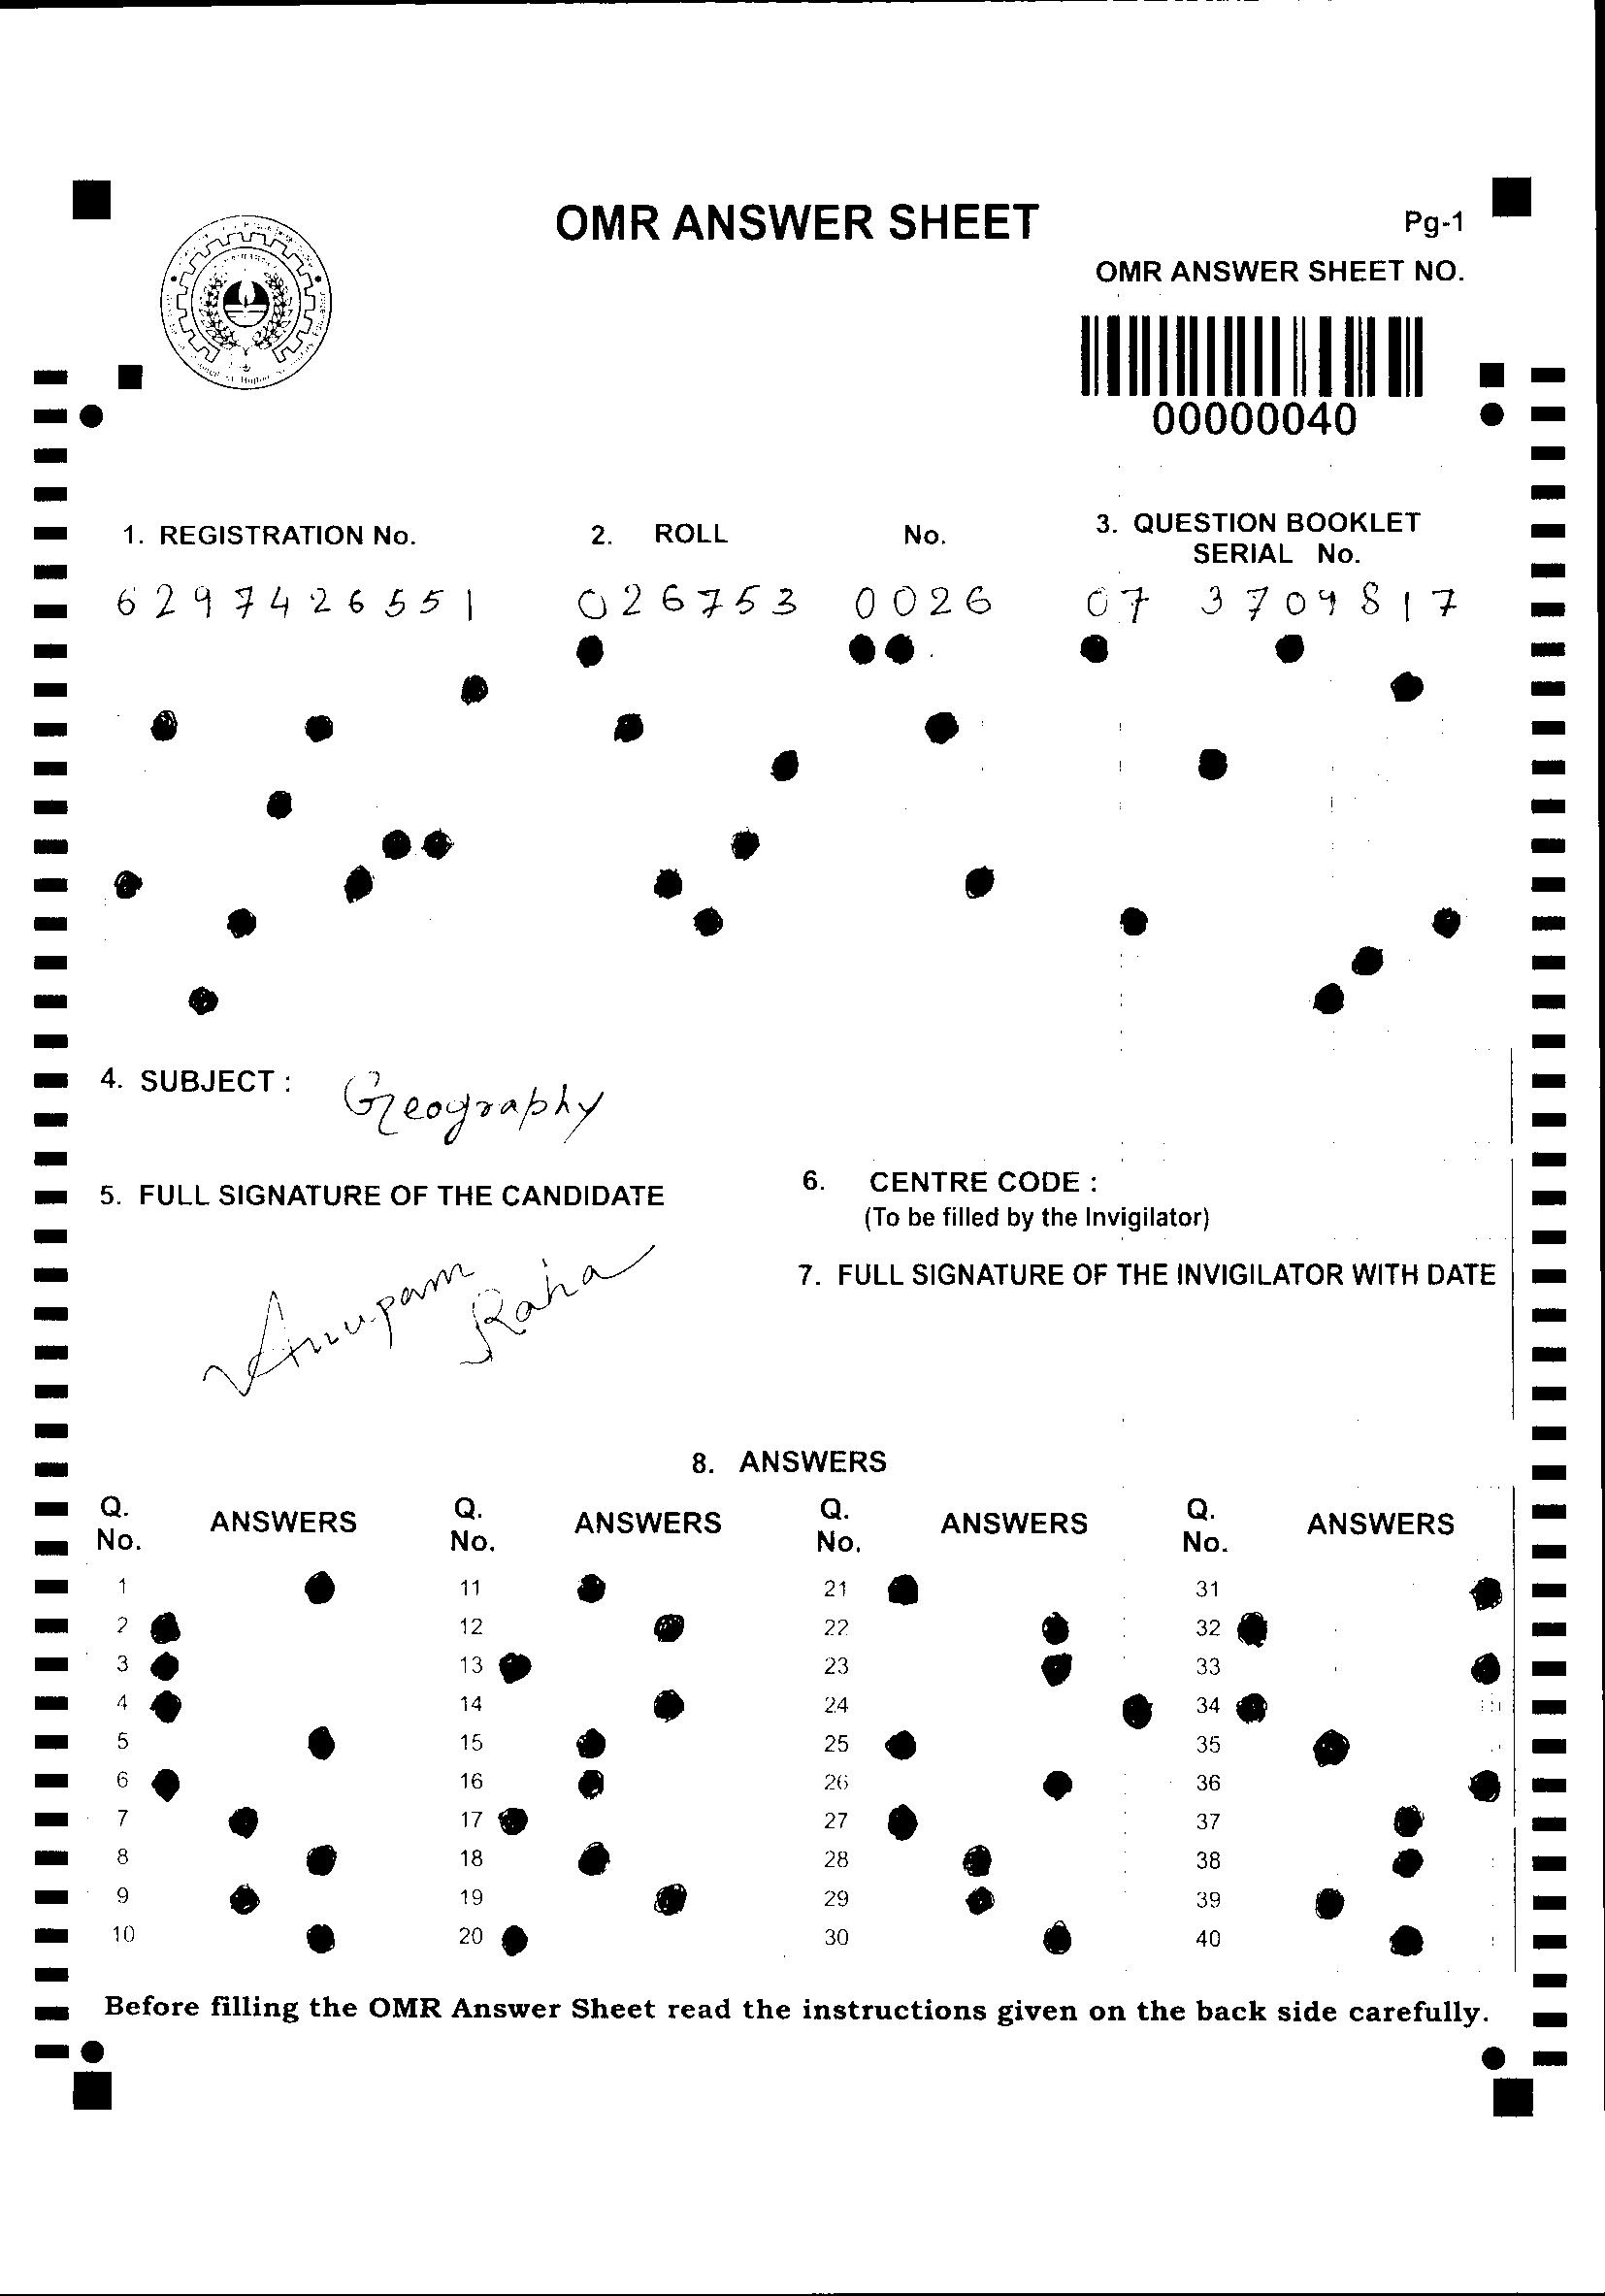 OMR ANSWER SHEET
Pg-1
OMR ANSWER SHEET NO.
00000040
1. REGISTRATION No.
2. ROLL No.
3. QUESTION BOOKLET
SERIAL No.
6297426551
026753 0026
07 3709817
4. SUBJECT : Geography
5. FULL SIGNATURE OF THE CANDIDATE
6. CENTRE CODE :
(To be filled by the Invigilator)
7. FULL SIGNATURE OF THE INVIGILATOR WITH DATE
Anupam Raha
8. ANSWERS
Q. No. ANSWERS Q. No. ANSWERS Q. No. ANSWERS Q. No. ANSWERS
1 11 21 31
2 12 22 32
3 13 23 33
4 14 24 34
5 15 25 35
6 16 26 36
7 17 27 37
8 18 28 38
9 19 29 39
10 20 30 40
Before filling the OMR Answer Sheet read the instructions given on the back side carefully.